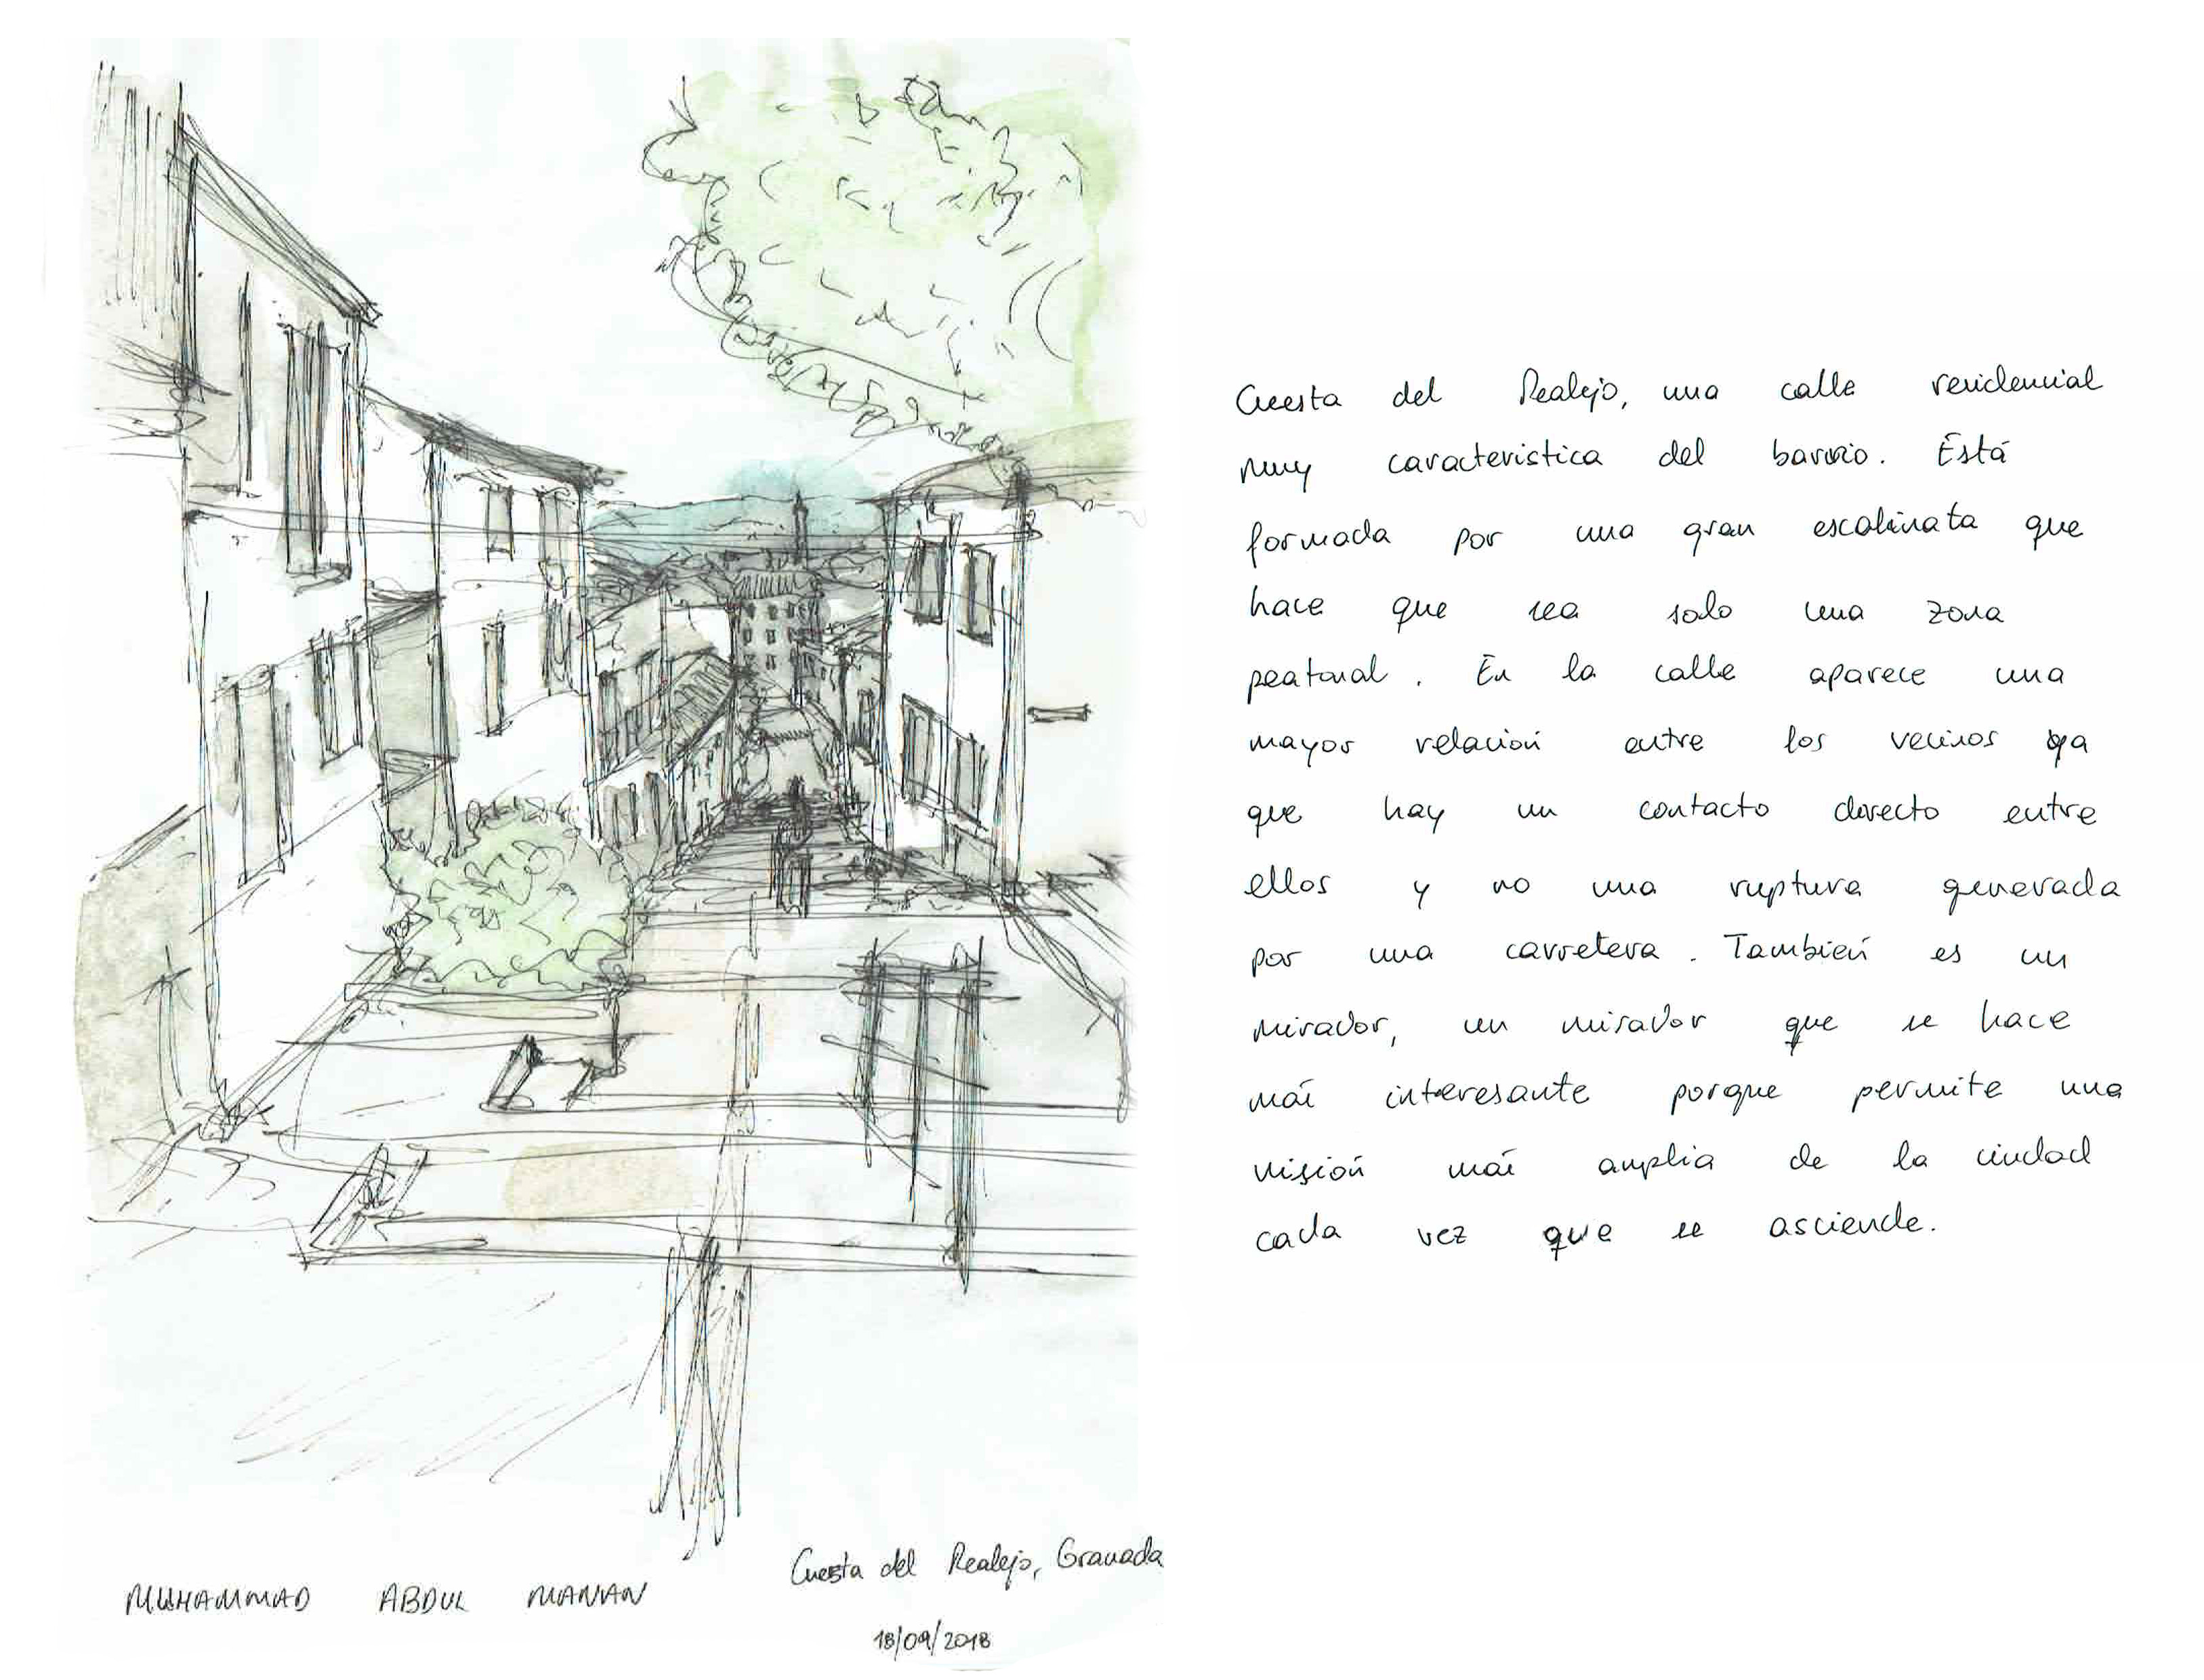 Cuesta del Realejo, una calle residencial
muy caracteristica del barrio. Está
formada por una gran escalinata que
hace que sea solo una zona
peatonal. En la calle aparece una
mayor relación entre los vecinos ya
que hay un contacto directo entre
ellos y no una ruptura generada
por una carretera. También es un
mirador, un mirador que se hace
más interesante porque permite una
visión más amplia de la ciudad
cada vez que se asciende.
Cuesta del Realejo, Granada
MUHAMMAD ABDUL MANAN
18/09/2018